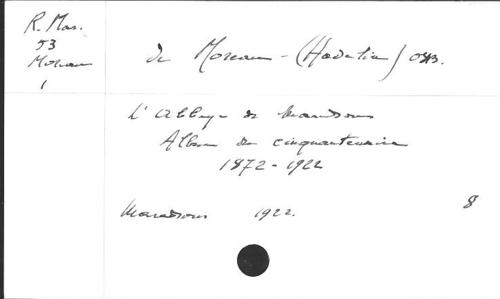 R. Mar.
53
Moreau
1
de Moreau - (Hadelin) OSB.
L'Abbaye de Maredsous
Album du cinquantenaire
1872-1922
Maredsous 1922.
8